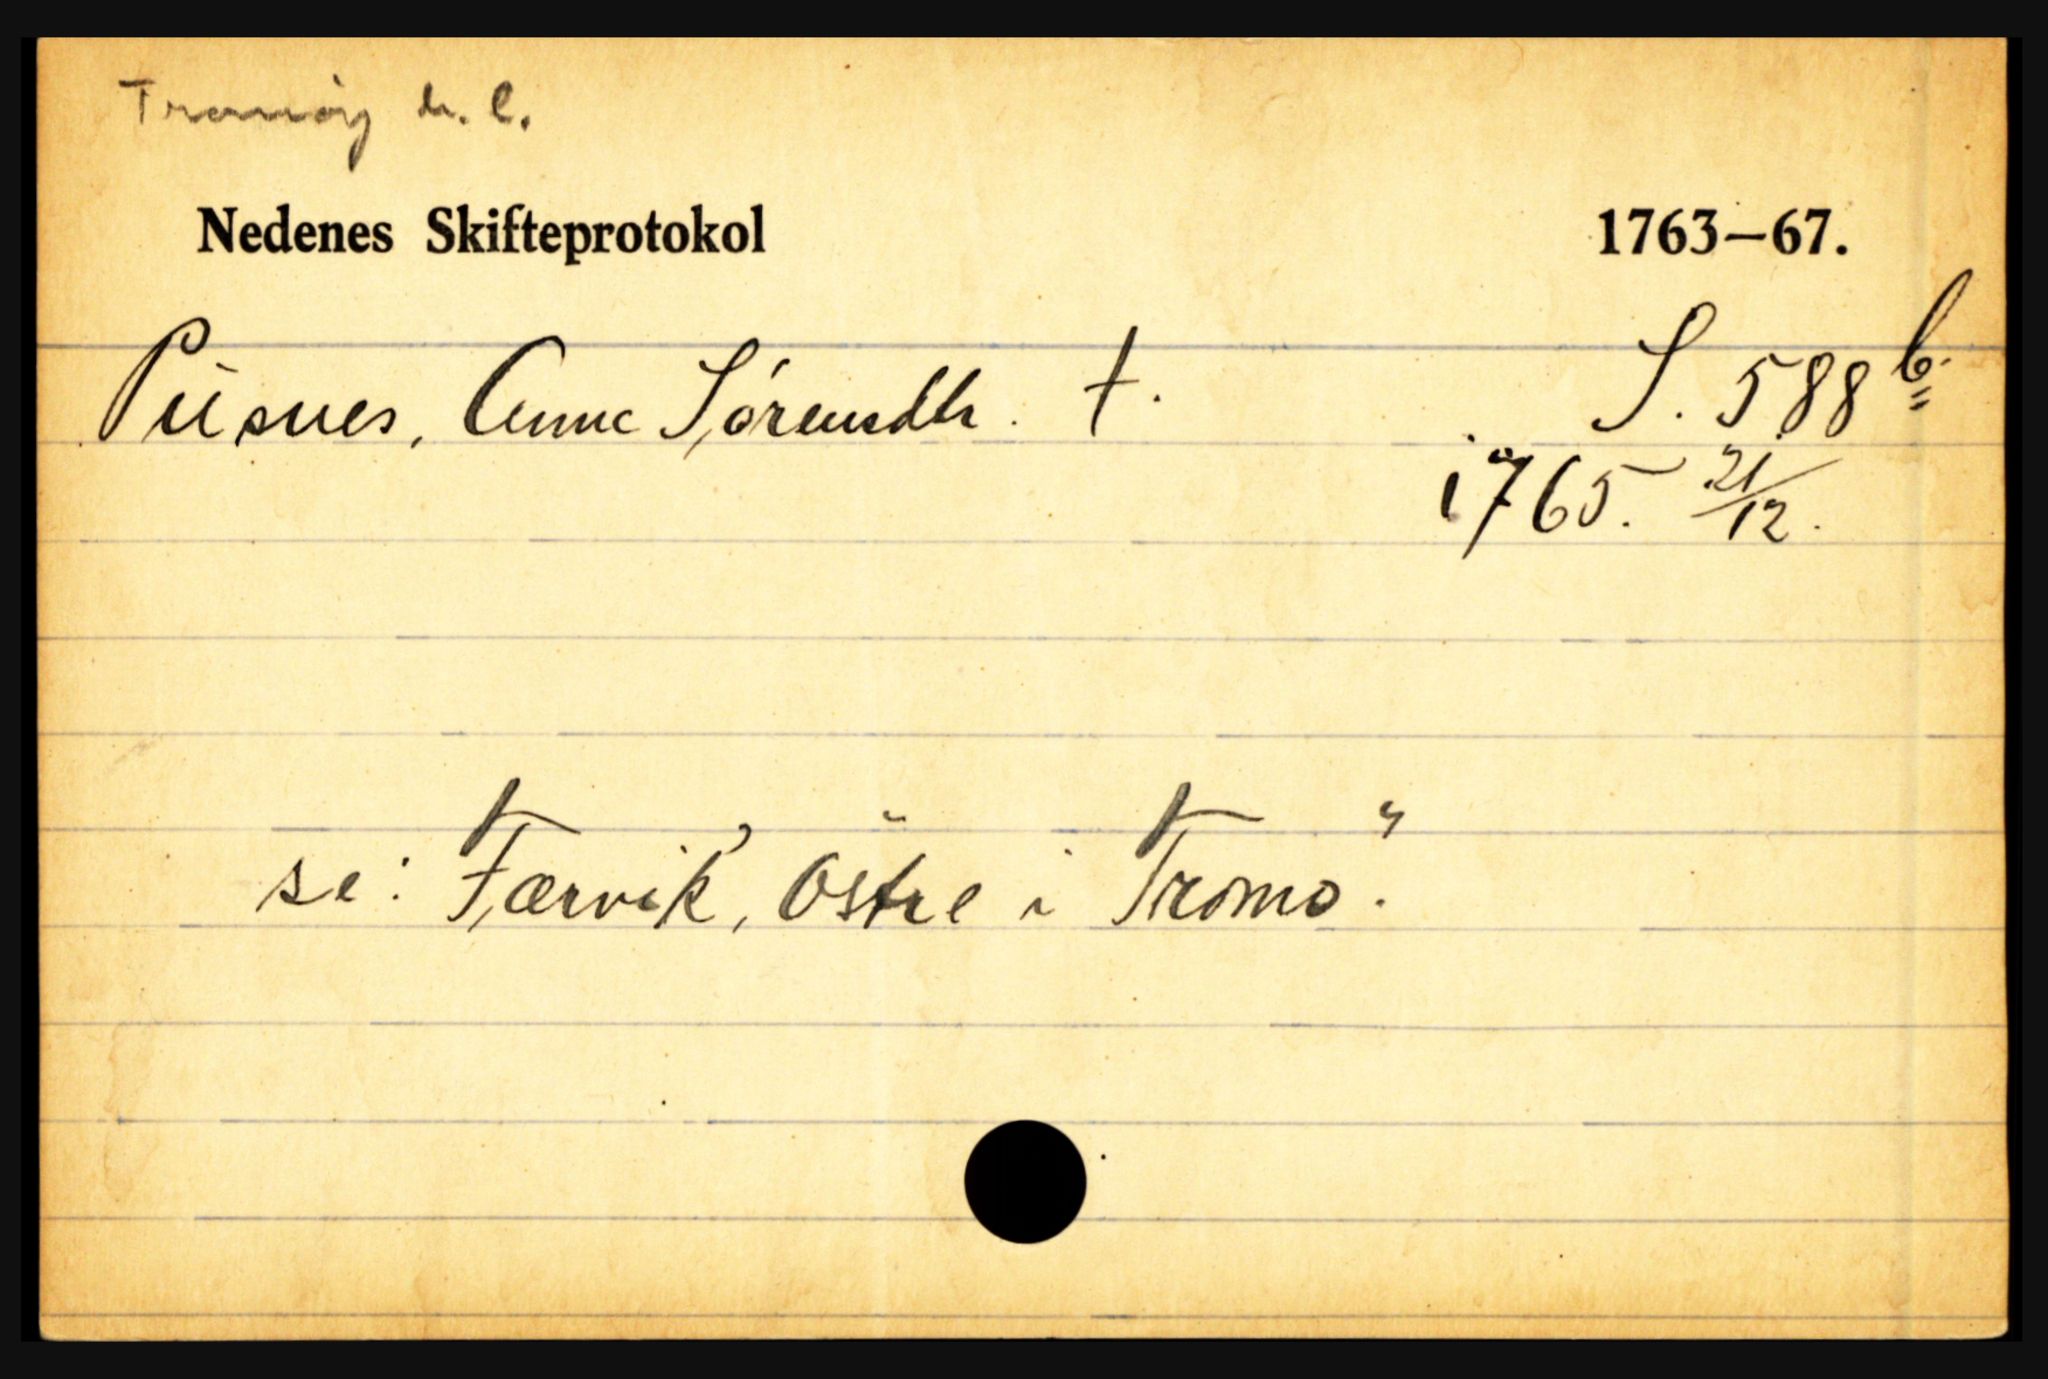 Tromöy h. l.
Nedenes Skifteprotokol 1763–67.
Püsnes, Anne Sørensdtr. †. S. 588 b.
1765. 21/12.
se: Færvik, Östre i Tromö.